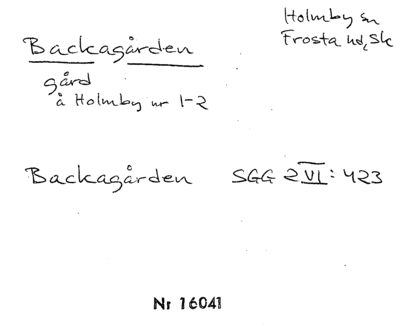 Holmby sn
Frosta hd, Sk
Backagården
gård
å Holmby nr 1-2
Backagården SGG 2 VI: 423
Nr 16041